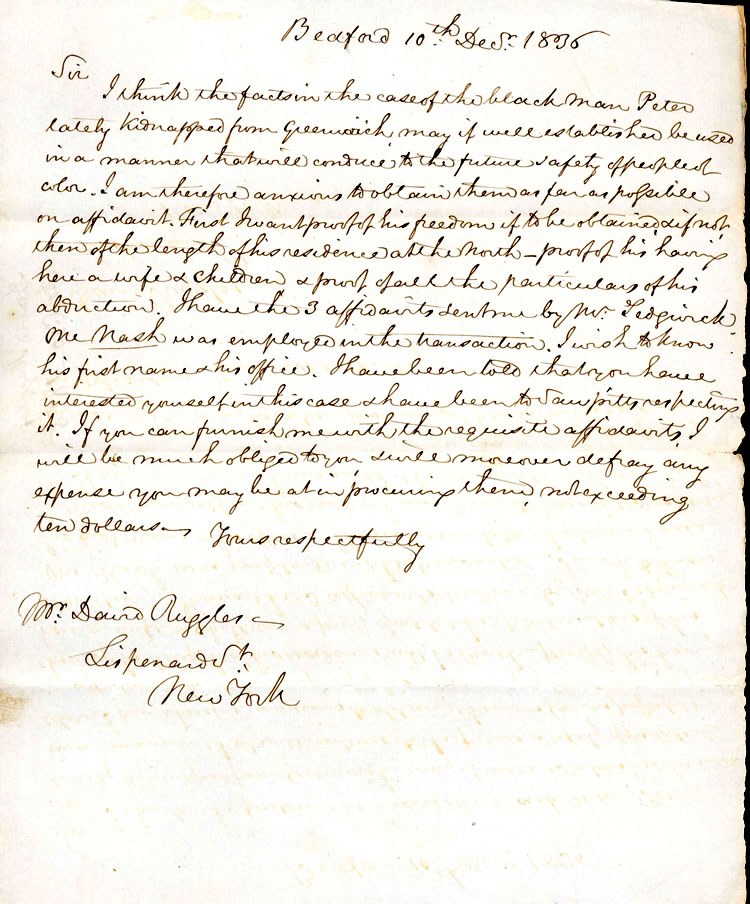 Bedford 10th Decr. 1836
Sir
I think the facts in the case of the black man Peter
lately kidnapped from Greenwich may if well established be used
in a manner that will conduce to the future safety of people of
color. I am therefore anxious to obtain them as far as possible
on affidavit. First I want proof of his freedom if to be obtained & if not,
then of the length of his residence at the North – proof of his having
here a wife & children & proof of all the particulars of his
abduction. I have the 3 affidavits sent me by Mr. Sedgwick.
One Nash was employed in the transaction. I wish to know
his first name & his office. I have been told that you have
interested yourself in this case & have been to Sawpitts respecting
it. If you can furnish me with the requisite affidavits, I
will be much obliged to you & will moreover defray any
expense you may be at in procuring them, not exceeding
ten dollars –
Yours respectfully
Mr. David Ruggles –
Lispenard St.
New York